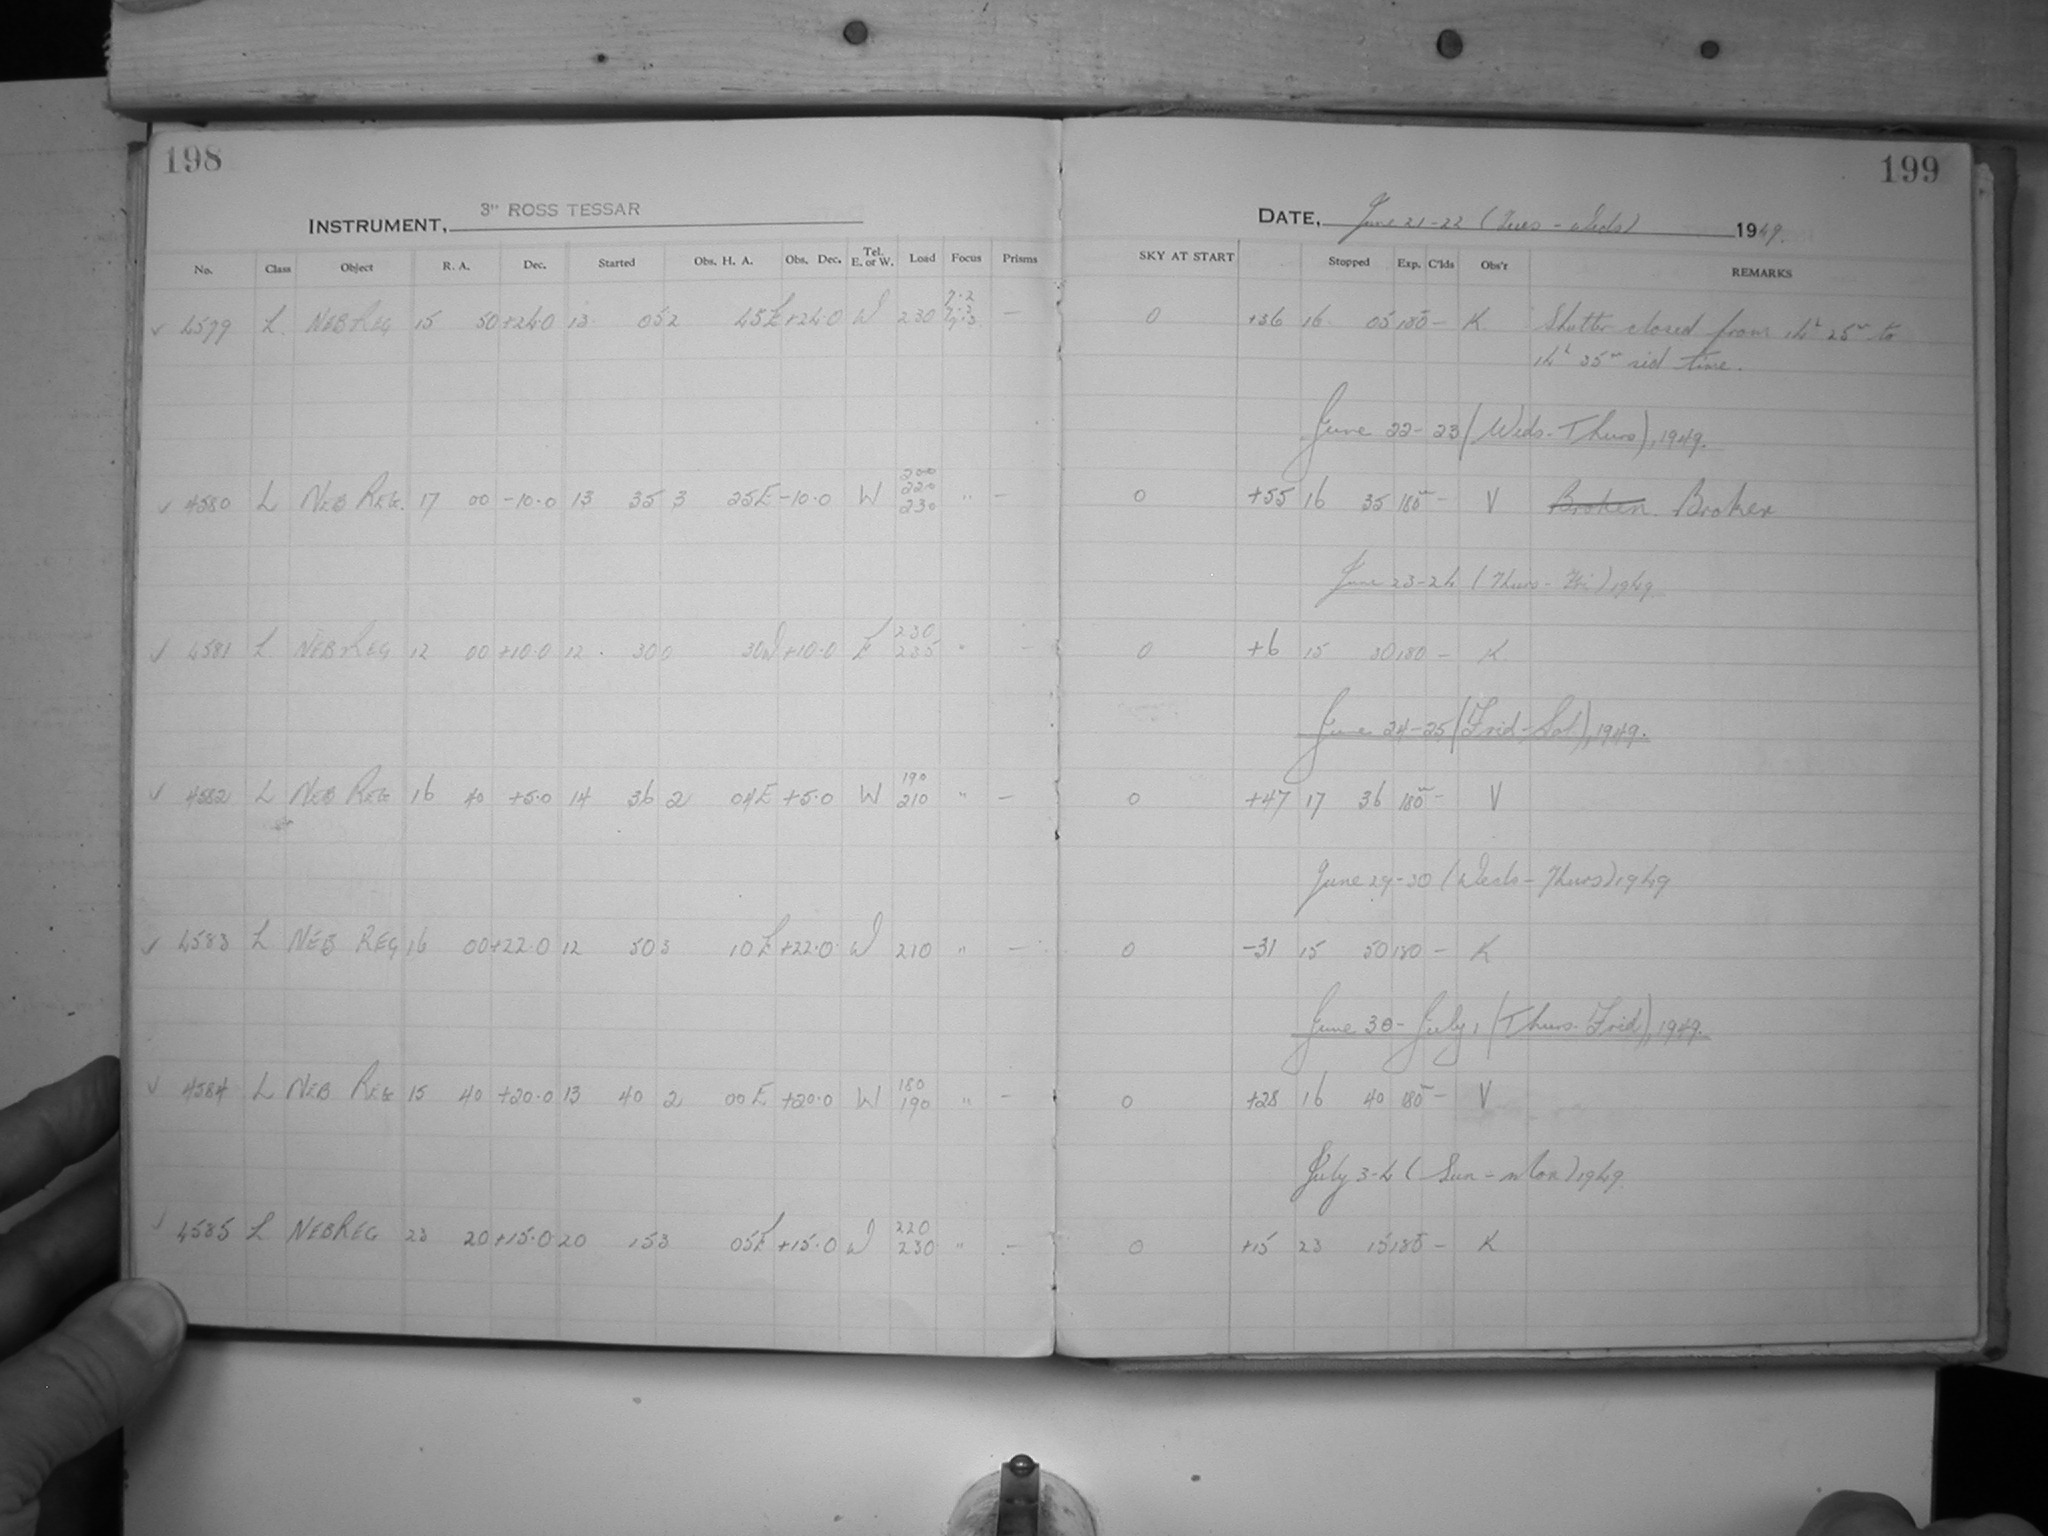 198
INSTRUMENT, 3" ROSS TESSAR
No. Class Object R. A. Dec. Started Obs. H. A. Obs. Dec. Tel. E. or W. Load Focus Prisms
✓ 4579 L NEB REG 15 50 +24.0 13 05 2 45E +24.0 W 230 7.2 7.3 —
✓ 4580 L NEB REG. 17 00 -10.0 13 35 3 25E -10.0 W 200 220 230 " —
✓ 4581 L NEB REG 12 00 +10.0 12 30 0 30W +10.0 E 230 235 " —
✓ 4582 L NEB REG 16 40 +5.0 14 36 2 04E +5.0 W 190 210 " —
✓ 4583 L NEB REG 16 00 +22.0 12 50 3 10E +22.0 W 210 " —
✓ 4584 L NEB REG 15 40 +20.0 13 40 2 00E +20.0 W 180 190 " —
✓ 4585 L NEB REG 23 20 +15.0 20 15 3 05E +15.0 W 220 230 " —
199
DATE, June 21-22 (Tues - Weds) 1949.
SKY AT START Stopped Exp. C'lds Obs'r REMARKS
0 +36 16 05 180 — K Shutter closed from 14h 25m to
14h 35m sid time.
June 22-23 (Weds - Thurs), 1949.
0 +55 16 35 180m — V Broken. Broken
June 23-24 (Thurs - Fri) 1949
0 +6 15 30 180 — K
June 24-25 (Frid - Sat), 1949.
0 +47 17 36 180m — V
June 29-30 (Weds - Thurs) 1949
0 -31 15 50 180 — K
June 30 - July 1 (Thurs - Frid), 1949.
0 +28 16 40 180m — V
July 3-4 (Sun - Mon) 1949
0 +15 23 15 180 — K